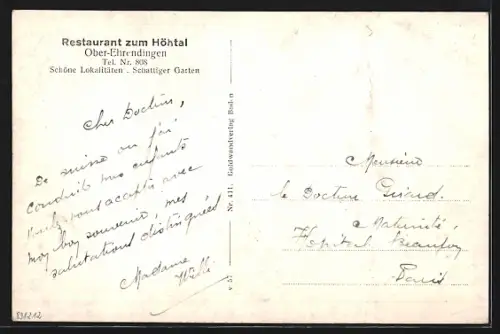 Restaurant zum Höhtal
Ober-Ehrendingen
Tel. Nr. 808
Schöne Lokalitäten . Schattiger Garten
Cher Docteur,
De où j'ai
conduite mes enfants
vous accepter avec
mon bon souvenir, mes
salutations distinguées
Madame
Nr. 411. Guldwandverlag Baden
v 5
Monsieur
le Docteur Giraud.
Maternité,
Hôpital Beaujon
Paris